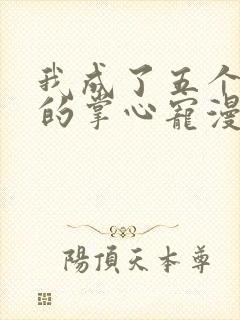 我成了五个
的掌心宠漫
陽頂天本尊